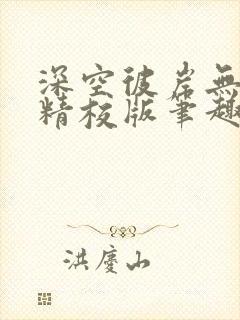 深空彼岸無
精校版筆趣
洪慶山